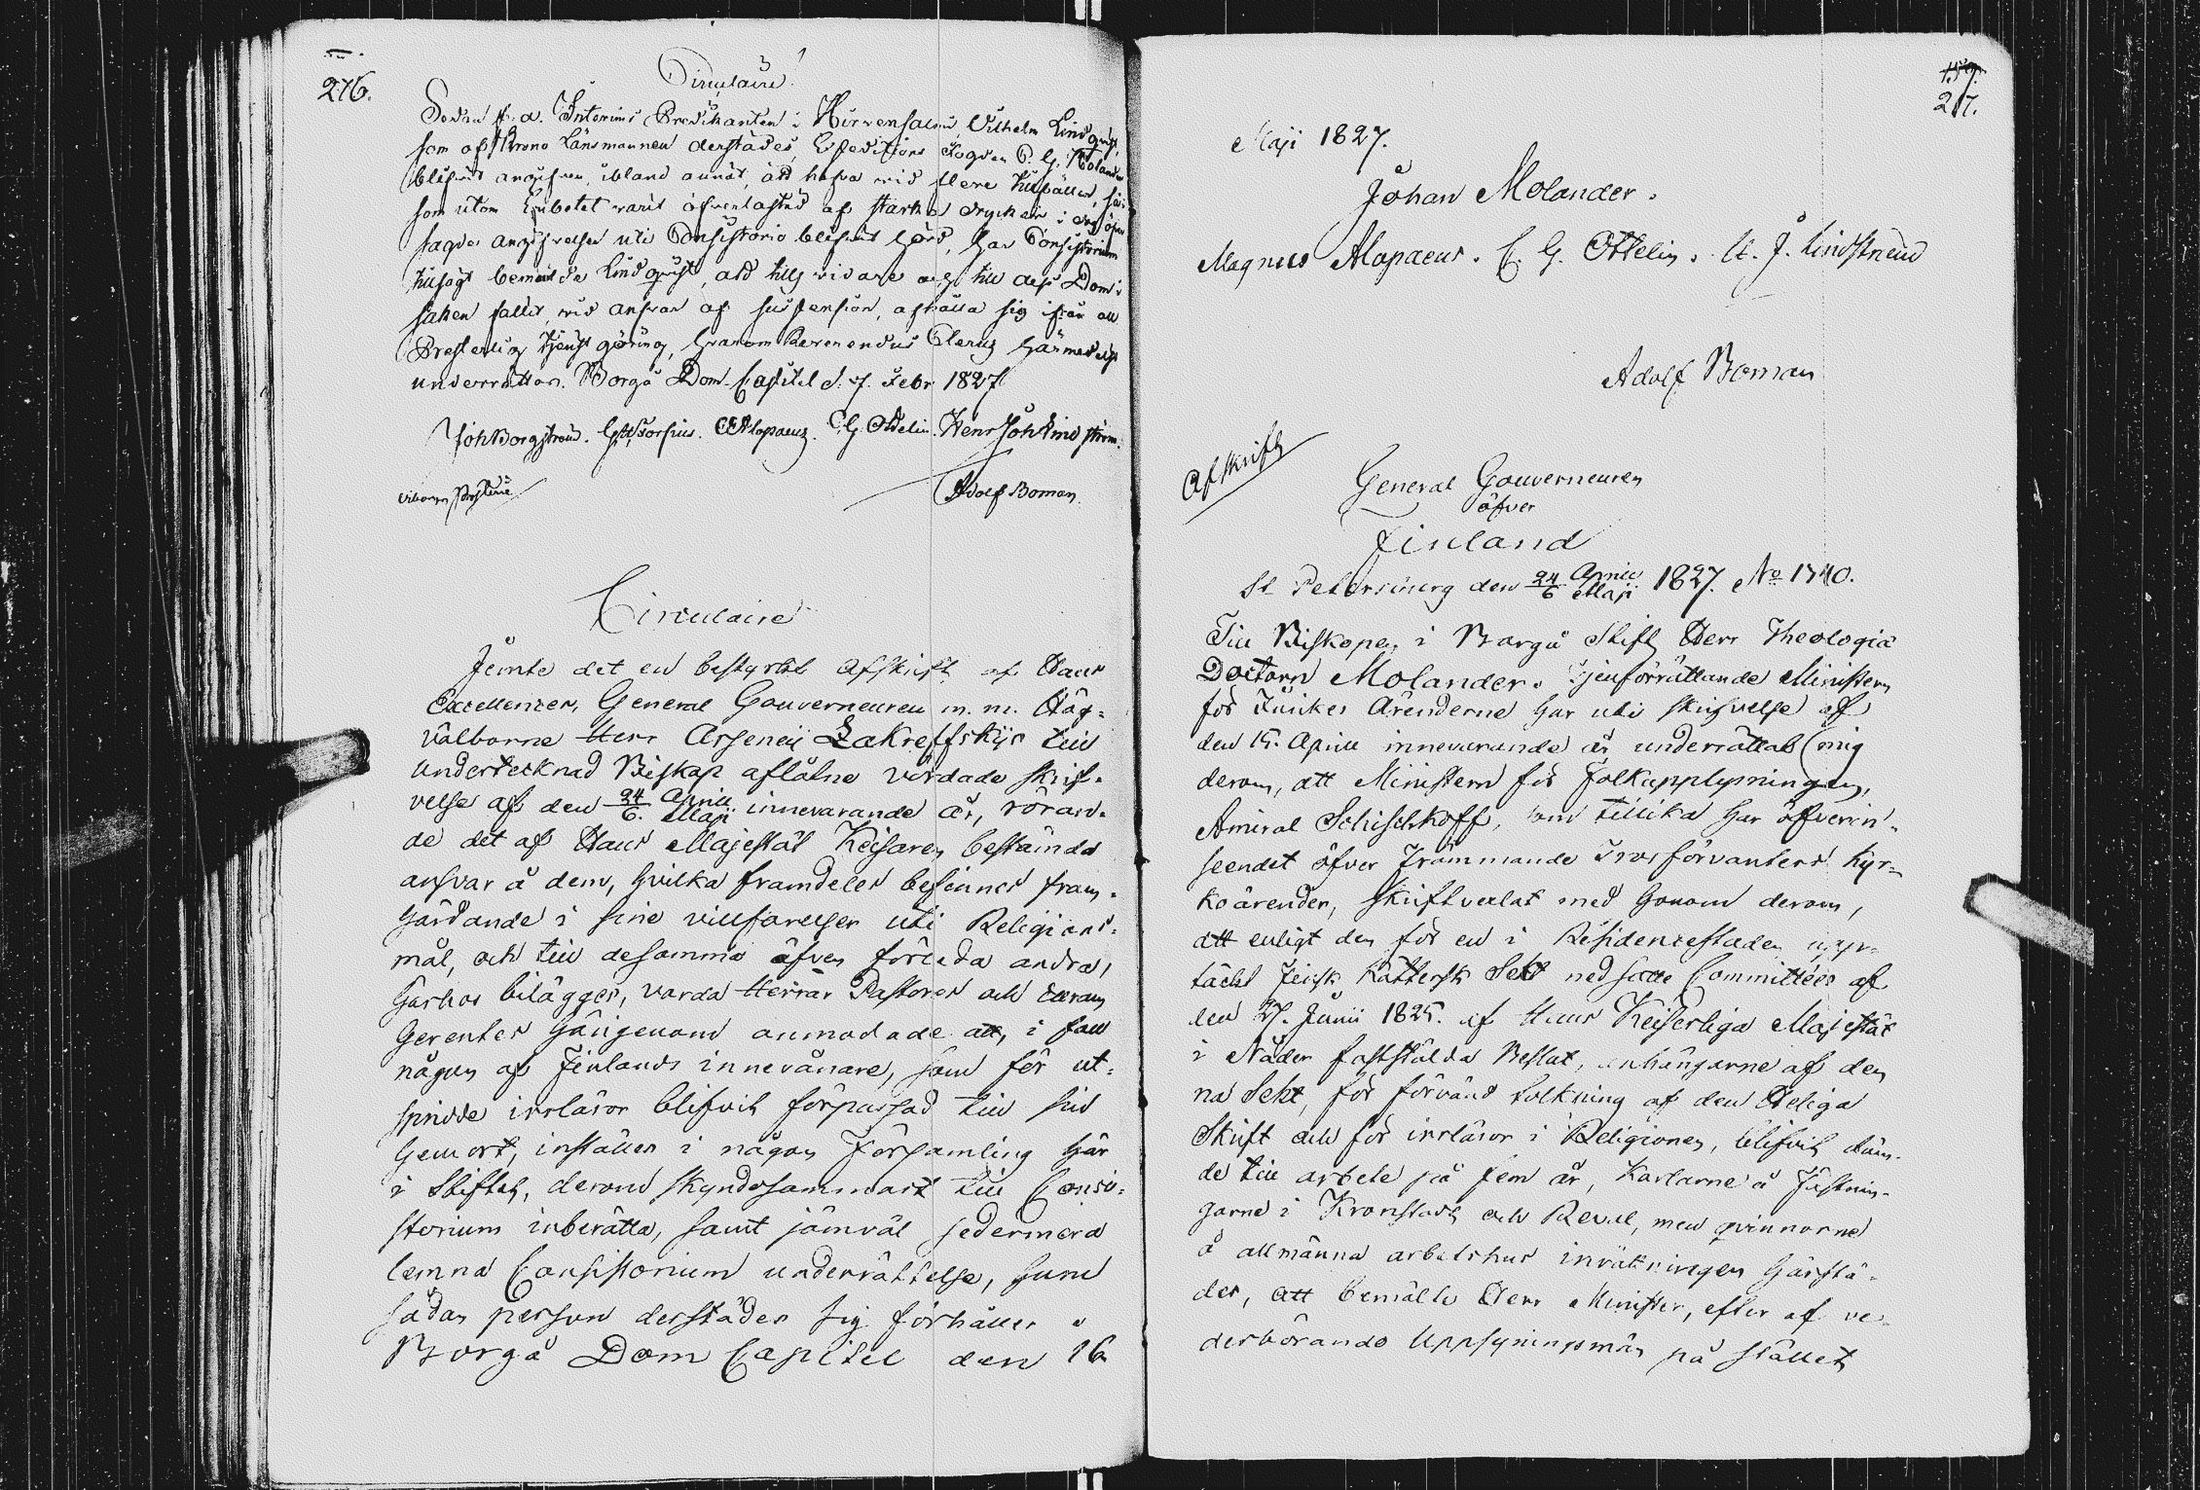 276.
Circulaire
Sedan f. d. Interims Predikanten i Hirvensalmi, Vilhelm Lindquist,
som af Krono Länsmannen derstädes, Expeditions Fogden P. G. Molander
blifvit angifven, ibland annat, att hafva vid flere tillfällen, så i
som utom Embetet varit öfverlastad af starka drycker i och öfver
sagde angifvelse uti Consistorio blifvit hörd, har Consistorium
tillsagt bemälde Lindquist, att tills vidare och till dess Dom i
saken fallit, vid ansvar af suspension, afhålla sig ifrån all
Presterlig tjenstgöring, hvarom Reverendus Clerus härmedelst
underrättas. Borgå Dom-Capitel d. 7. Febr 1827
Joh Borgström. M Alopaeus. C. G. Ottelin. Henr Joh Lindström.
Adolf Boman.
Circulaire
Jemte det en bestyrkt afskrift af Hans
Excellences, General Gouverneuren m. m. Hög-
välborne Herr Arseneij Zakreffskijs till
undertecknad Biskop aflåtne vördade skrif-
velse af den 24 April / 6. Maji innevarande år, röran-
de det af Hans Majestät Kejsaren bestämda
ansvar å dem, hvilka framdeles befinnes fram-
härdande i sine villfarelser uti Religions-
mål, och till desamma äfven förleda andra,
härhos bilägges, varda Herrar Pastorer och deras
Gerenter härigenom anmodade att, i fall
någon af Finlands innevånare, som för ut-
spridde irrläror blifvit förpassad till sin
hemort, inställer i någon Församling här
i Stiftet, derom skyndsammast till Consi-
storium inberätta, samt jämväl sedermera
lemna Consistorium underrättelse, huru
sådan person derstädes sig förhåller.
Borgå Dom Capitel den 16
157.
217.
Maji 1827.
Johan Molander.
Magnus Alopaeus. C. G. Ottelin. H. J. Lindström
Adolf Boman
Afskrift
General Gouverneuren
öfver
Finland
St Petersburg den 24 April / 6 Maji 1827. No 1740.
Till Biskopen i Borgå Stift Herr Theologiæ
Doctorn Molander. Tjenförrättande Ministern
för Inrikes Ärenderne har uti skrifvelse af
den 15. April innevarande år underrättat mig
derom, att Ministern för Folkupplysningen,
Amiral Schischkoff, som tillika har öfverin-
seendet öfver främmande Trosförvanters Kyr-
koärender, skriftvexlat med honom derom,
att enligt den för en i Residencestaden upp-
täckt Finsk Kättersk Sekt nedsatte Committées af
den 27. Junii 1825. af Hans Kejserliga Majestät
i Nåder fastställda Beslut, anhängarne af den
na Sekt, för förvänd tolkning af den Heliga
Skrift och för irrläror i Religionen, blifvit döm-
de till arbete på fem år, Karlarne å Fästnin-
garne i Kronstadt och Reval, men qvinnorne
å allmänna arbetshus inrättningen härstä-
des, att bemälte Herr Minister, efter af ve-
derbörande Uppsyningsmän på stället